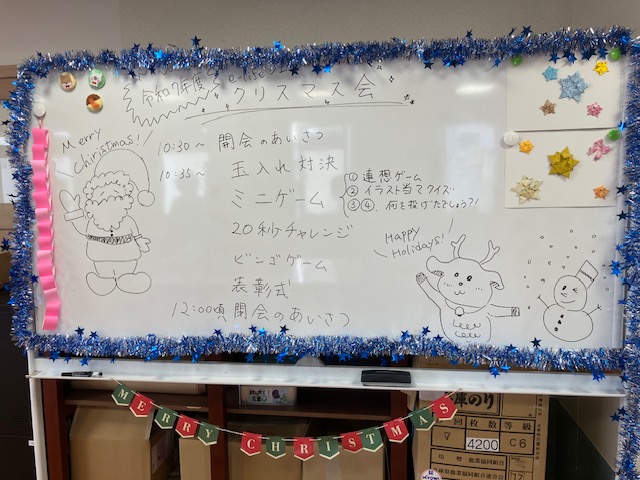 令和7年度 e-rise
クリスマス会
Merry
Christmas!
10:30～ 開会のあいさつ
10:35～ 玉入れ対決
ミニゲーム
① 連想ゲーム
② イラスト当てクイズ
③④、何を投げたでしょう?!
20秒チャレンジ
ビンゴゲーム
表彰式
12:00頃 閉会のあいさつ
Happy
Holidays!
MERRY CHRISTMAS
のり
回数等級
4200 C6